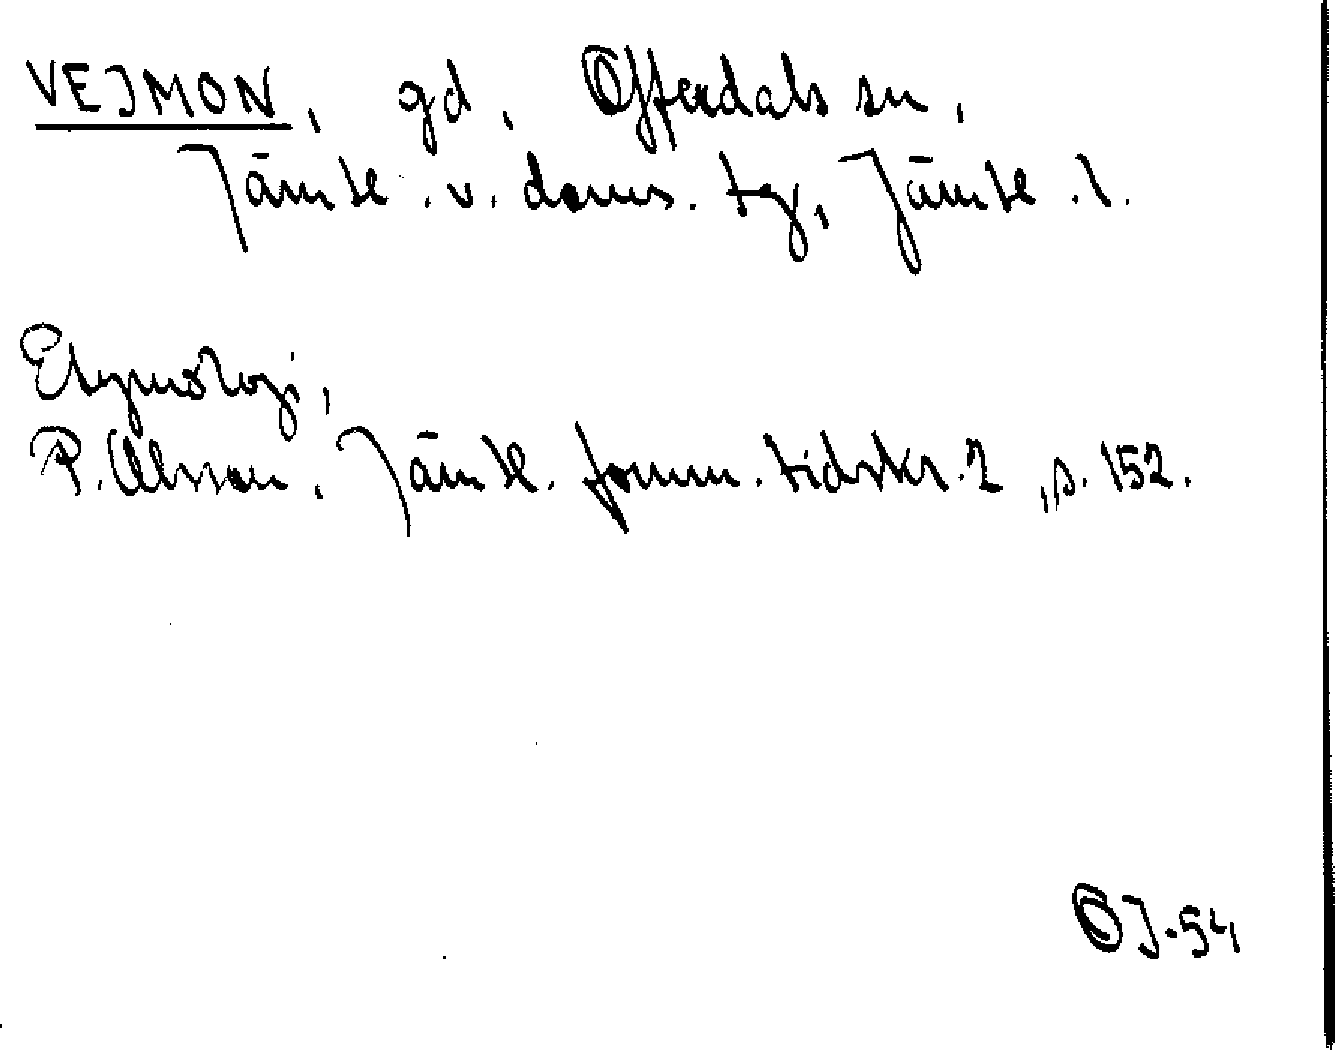 VEJMON, gd, Offerdals sn,
Jämtl. v. doms. tg, Jämtl. l.
Etymologi,
P. Olsson, Jämtl. fornm. tidskr. 2, s. 152.
OJ-54